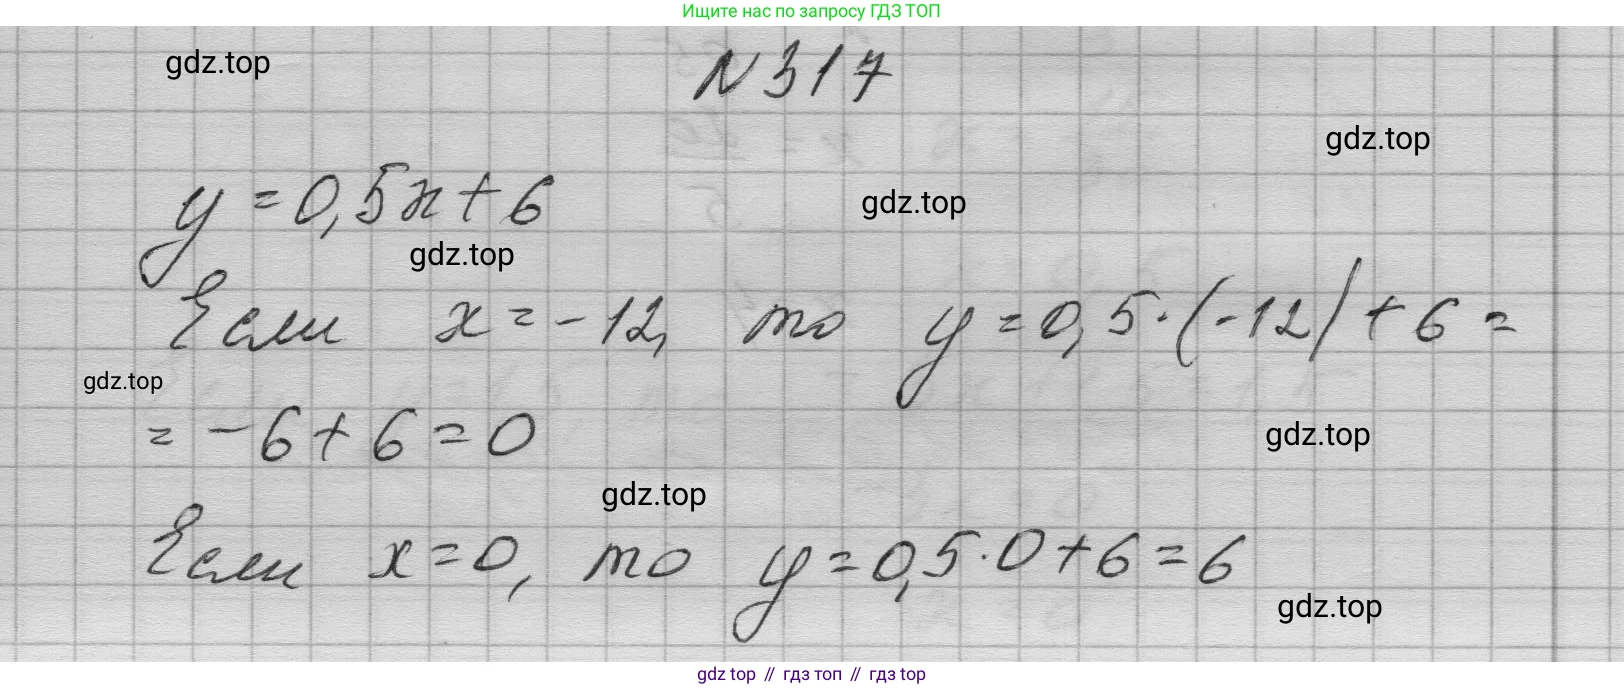 Ищите нас по запросу ГДЗ ТОП
gdz.top
N 317
gdz.top
y = 0,5x + 6
gdz.top
gdz.top
Если x = -12, то y = 0,5·(-12) + 6 =
gdz.top
= -6 + 6 = 0
gdz.top
gdz.top
Если x = 0, то y = 0,5·0 + 6 = 6
gdz.top
gdz top // гдз топ // гдз top